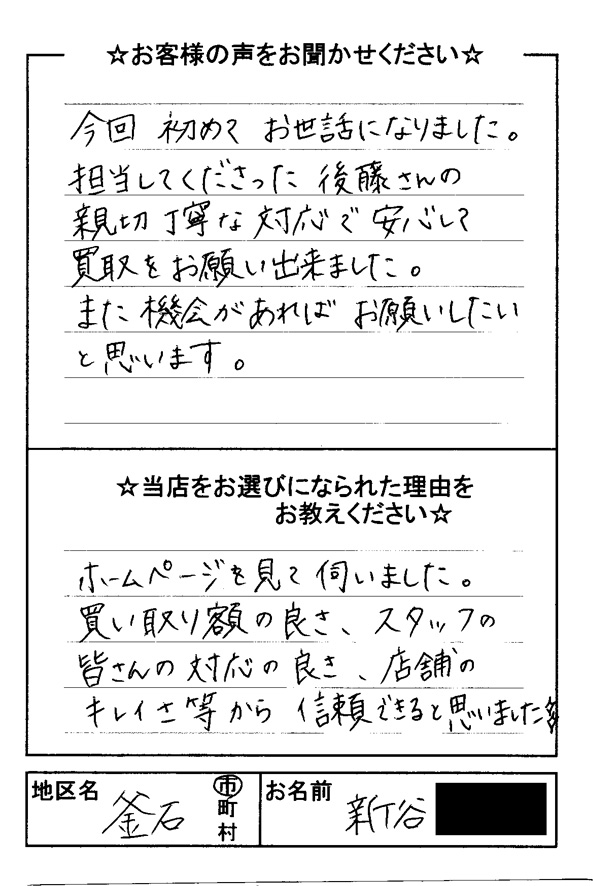 ☆お客様の声をお聞かせください☆
今回 初めて お世話になりました。
担当してくださった 後藤さんの
親切丁寧な対応で安心して
買取をお願い出来ました。
また機会があれば お願いしたい
と思います。
☆当店をお選びになられた理由を
お教えください☆
ホームページを見て伺いました。
買い取り額の良さ、スタッフの
皆さんの対応の良さ、店舗の
キレイさ等から 信頼できると思いました
地区名 釜石 市町村
お名前 新谷